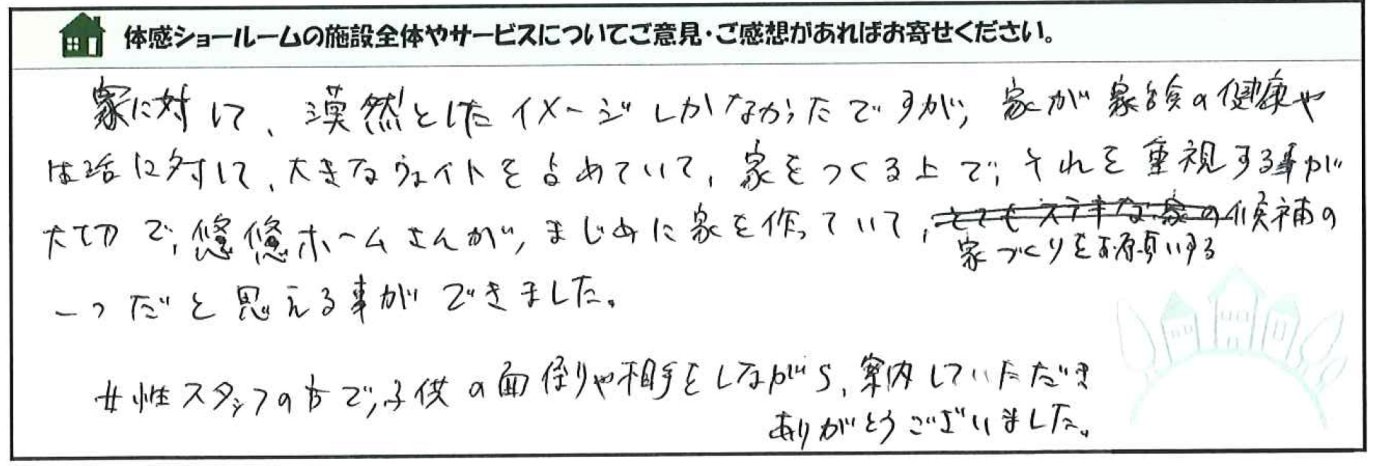 体感ショールームの施設全体やサービスについてご意見・ご感想があればお寄せください。
家に対して、漠然としたイメージしかなかったですが、家が家族の健康や
生活に対して、大きなウェイトを占めていて、家をつくる上で、それを重視する事が
大切で、悠悠ホームさんが、まじめに家を作っていて、とてもステキな家の候補の
家づくりをお願いする
一つだと思える事ができました。
女性スタッフの方で、子供の面倒りや相手をしながら、案内していただき
ありがとうございました。